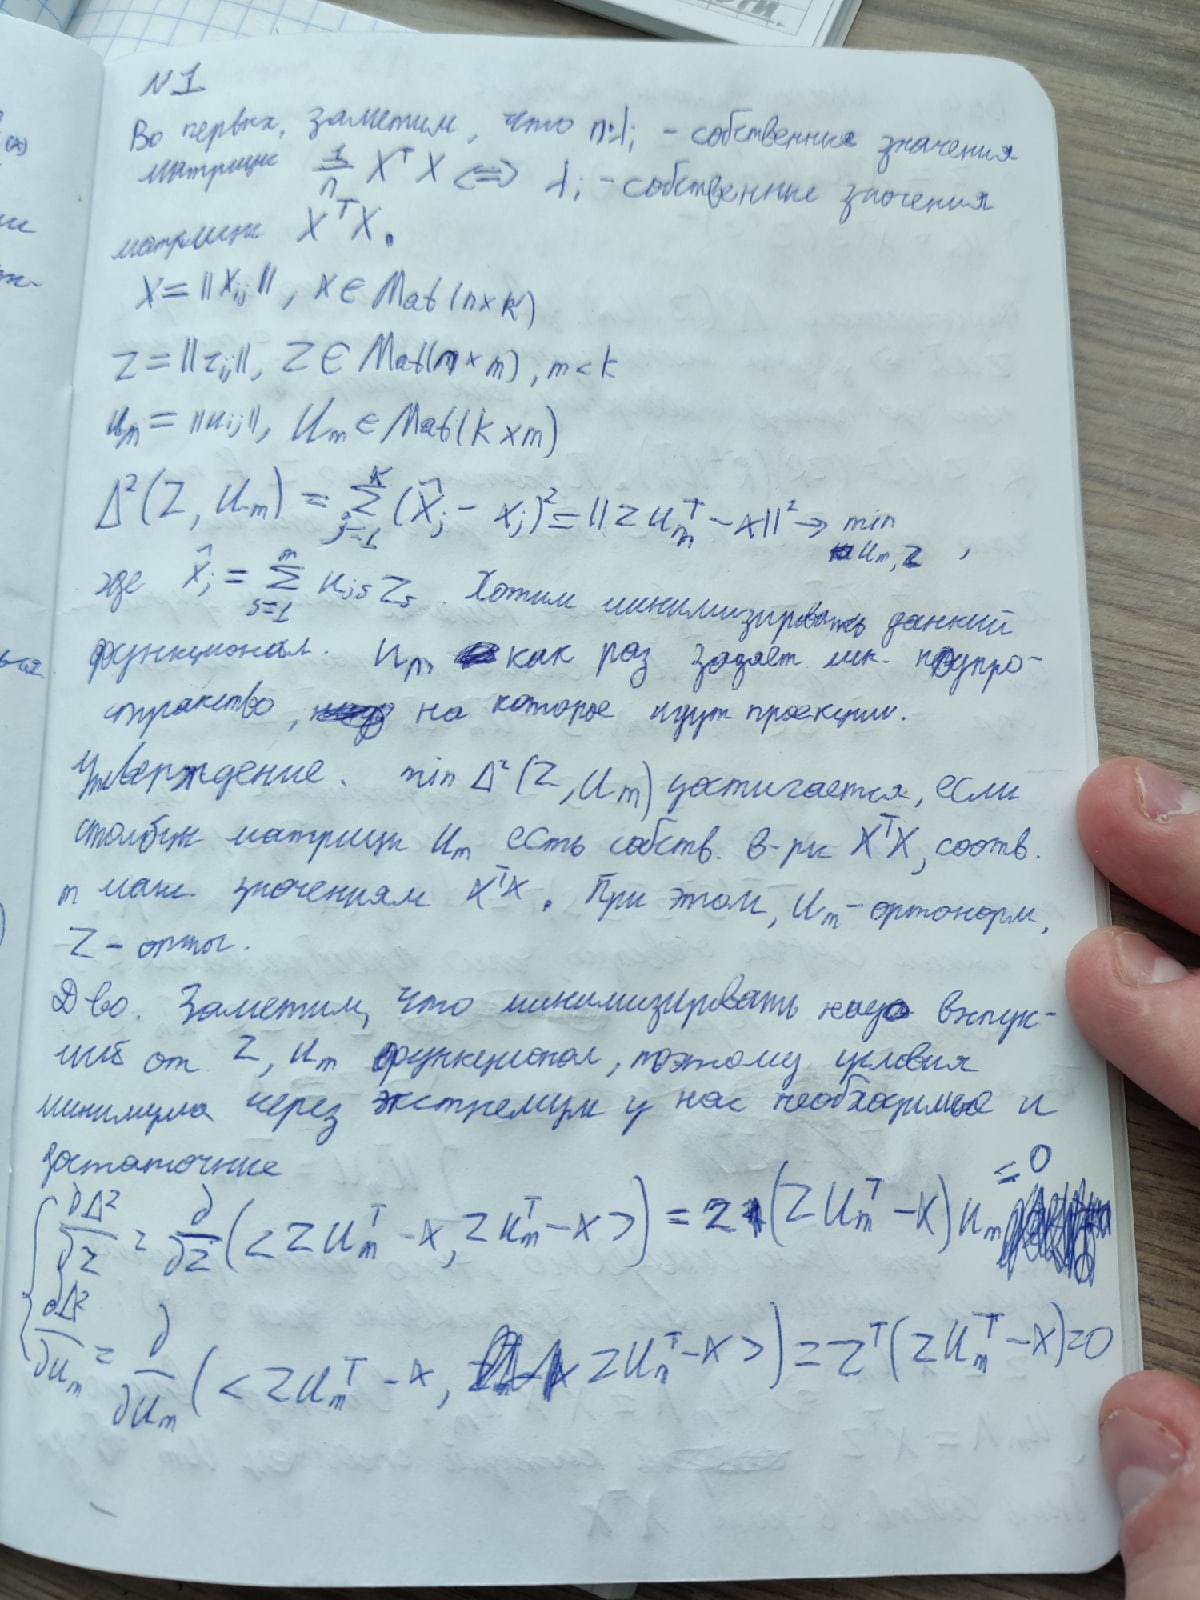 N1
Во первых, заметим, что nλi - собственные значения
матрицы 1/n X^T X <=> λi - собственные значения
матрицы X^T X.
X = ||Xij||, X ∈ Mat(n×k)
Z = ||zij||, Z ∈ Mat(n×m), m < k
Um = ||uij||, Um ∈ Mat(k×m)
Δ²(Z, Um) = Σ_{j=1}^{k} (X̂j - xj)² = ||ZUm^T - X||² → min Um, Z,
где X̂j = Σ_{s=1}^{m} ujs Zs. Хотим минимизировать данный
функционал. Um как раз задает лин. подпро-
странство, на которое идут проекции.
Утверждение. min Δ²(Z, Um) достигается, если
столбцы матрицы Um есть собств. в-ры X^T X, соотв.
m макс. значениям X^T X. При этом, Um - ортонорм,
Z - ортог.
Д-во. Заметим, что минимизировать надо выпук-
лый от Z, Um функционал, поэтому условия
минимума через экстремум у нас необходимые и
достаточные
{ ∂Δ²/∂Z = ∂/∂Z (<ZUm^T - X, ZUm^T - X>) = 2(ZUm^T - X)Um = 0
∂Δ²/∂Um = ∂/∂Um (<ZUm^T - X, ZUm^T - X>) = Z^T(ZUm^T - X) = 0